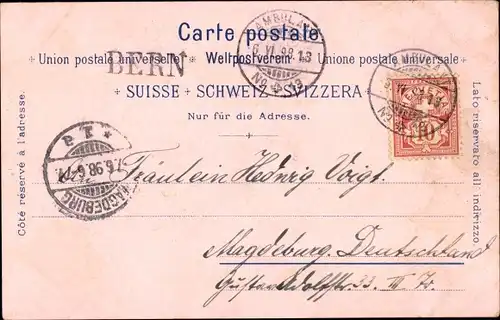 Carte postale
Union postale universelle. Weltpostverein. Unione postale universale.
BERN
SUISSE SCHWEIZ SVIZZERA
Nur für die Adresse.
Côté réservé à l'adresse.
Lato riservato all'indirizzo.
AMBULANT
6 VI 98 13
No 13
AMBULANT
10
P.T.
7.6.98.6-7
MAGDEBURG
Fräulein Hedwig Voigt.
Magdeburg. Deutschland
Gustav Adolfstr. 33. III